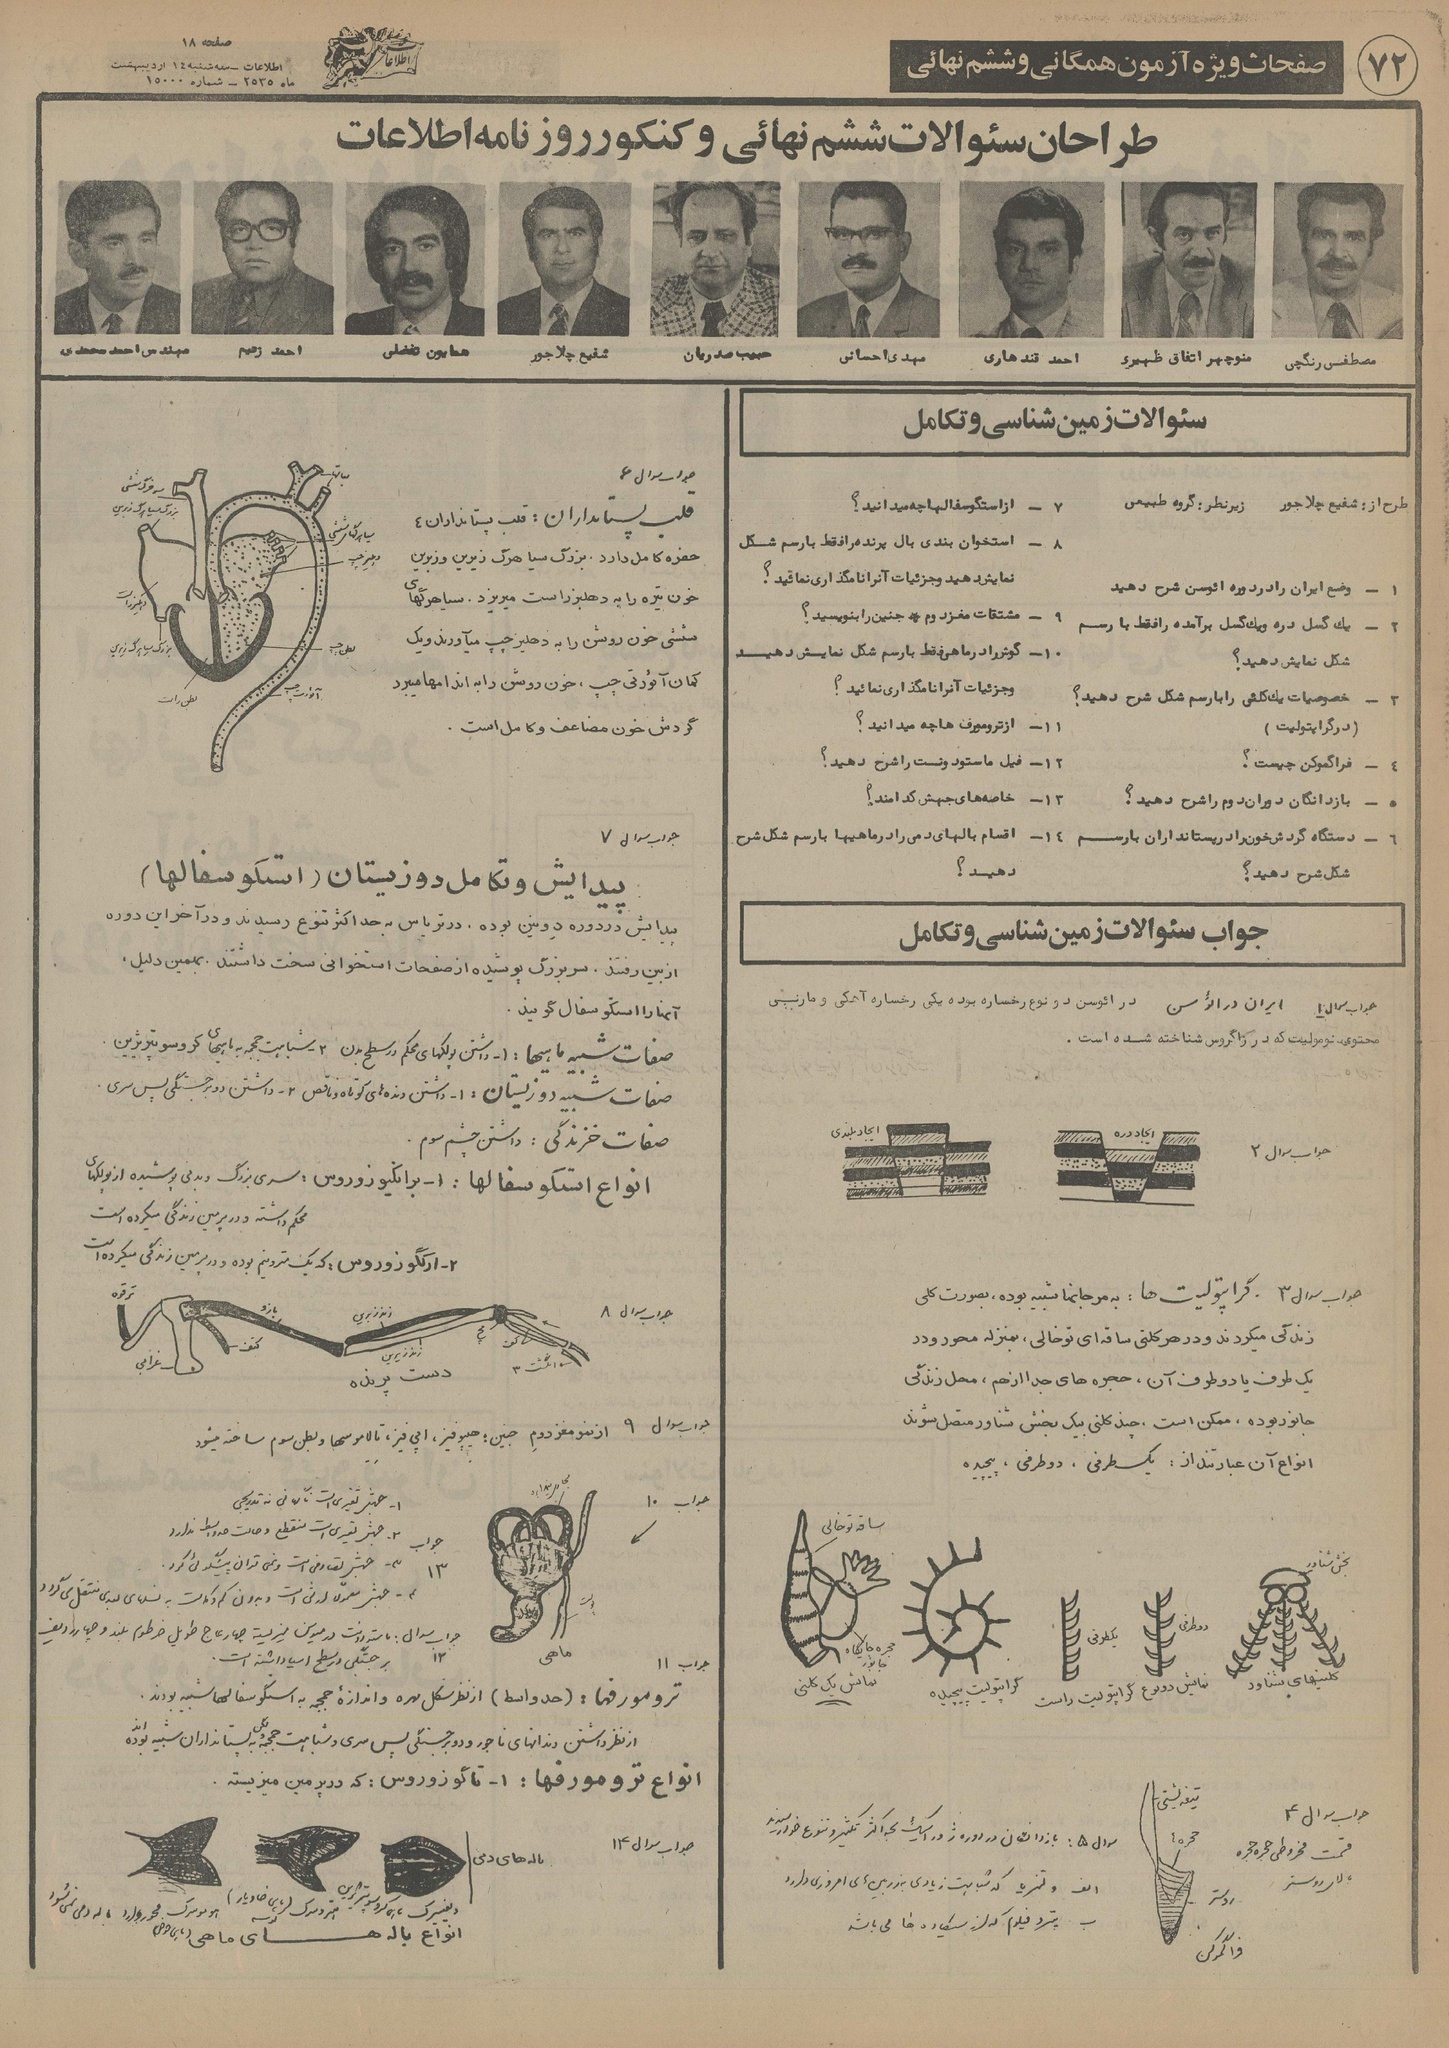 صفحه ۱۸
اطلاعات – سه شنبه ۱۴ اردیبهشت
ماه ۲۵۳۵ – شماره ۱۵۰۰۰
اطلاعات
صفحات ویژه آزمون همگانی و ششم نهائی
۷۲
طراحان سئوالات ششم نهائی و کنکور روزنامه اطلاعات
مصطفی رنگچی
منوچهر اتفاق ظهیری
احمد قندهاری
مهدی احسانی
حبیب صدریان
شفیع چلاجور
همایون تفضلی
احمد زعیم
مهندس احمد محمدی
سئوالات زمین شناسی و تکامل
طرح از : شفیع چلاجور زیرنظر : گروه طبیعی
۱ – وضع ایران را در دوره ائوسن شرح دهید
۲ – یك گسل دره ویك گسل برآمده را فقط با رسم
شکل نمایش دهید؟
۳ – خصوصیات یك کلنی را با رسم شکل شرح دهید؟
(در گراپتولیت)
۴ – فراگموکن چیست؟
۵ – بازدانگان دوران دوم را شرح دهید؟
۶ – دستگاه گردش خون را در پستانداران با رسم
شکل شرح دهید؟
۷ – از استگوسفالها چه میدانید؟
۸ – استخوان بندی بال پرنده را فقط با رسم شکل
نمایش دهید و جزئیات آنرا نامگذاری نمائید؟
۹ – مشتقات مغز دوم جنین را بنویسید؟
۱۰– گوش را در ماهی فقط با رسم شکل نمایش دهید
و جزئیات آنرا نامگذاری نمائید؟
۱۱– از ترومورف ها چه میدانید؟
۱۲– فیل ماستودونت را شرح دهید؟
۱۳– خاصه های جهش کدامند؟
۱۴– اقسام بالهای دمی را در ماهیها با رسم شکل شرح
دهید؟
جواب سئوالات زمین شناسی و تکامل
جواب سوال ۱ ایران در ائوسن در ائوسن دو نوع رخساره بوده یکی رخساره آهکی و مارنی
محتوی نومولیت که در زاگروس شناخته شده است .
جواب سوال ۲
ایجاد دره
ایجاد بلندی
جواب سوال ۳ . گراپتولیت ها : به مرجانها شبیه بوده ، بصورت کلنی
زندگی میکردند و در هر کلنی ساقه ای توخالی ، بمنزله محور و در
یک طرف یا دو طرف آن ، حجره های جدا از هم ، محل زندگی
جانور بوده ، ممکن است ، چند کلنی بیک بخش شناور متصل شوند
انواع آن عبارتند از : یک طرفی ، دو طرفی ، پیچیده
ساقه توخالی
حجره جایگاه جانور
نمایش یک کلنی
گراپتولیت پیچیده
یکطرفی
دو طرفی
نمایش دو نوع گراپتولیت راست
بخش شناور
کلنیهای شناور
جواب سوال ۴
قسمت مخروطی حجره حجره
بالای روستر
تیغه پشتی
حجره ها
روستر
فراگموکن
سوال ۵ : بازدانگان در دوره ژوراسیک بحداکثر تکثیر و تنوع خود رسیدند
الف و لتزیا که شباهت زیادی به زربین های امروزی دارد
ب پتروفیلوم که از سیکاده ها می باشد
جواب سوال ۶
قلب پستانداران : قلب پستانداران ۴
حفره کامل دارد . بزرگ سیاهرگ زیرین و زبرین
خون تیره را به دهلیز راست میریزد . سیاهرگهای
ششی خون روشن را به دهلیز چپ میآورند و یک
کمان آئورتی چپ ، خون روشن را به اندامها میبرد
گردش خون مضاعف و کامل است .
سرخرگ ششی
بزرگ سیاهرگ زبرین
دهلیز راست
بزرگ سیاهرگ زیرین
بطن راست
سیاهرگ ششی
دهلیز چپ
بطن چپ
آئورت چپ
جواب سوال ۷
پیدایش و تکامل دوزیستان (استگوسفالها)
پیدایش در دوره دونین بوده . در تریاس به حداکثر تنوع رسیدند و در آخر این دوره
از بین رفتند . سر بزرگ پوشیده از صفحات استخوانی سخت داشتند . بهمین دلیل ،
آنها را استگوسفال گویند .
صفات شبیه ماهیها : ۱- داشتن پولکهای محکم در سطح بدن ۲- شباهت جمجمه به ماهیهای کروسوپتریژین .
صفات شبیه دوزیستان : ۱- داشتن دنده های کوتاه و ناقص ۲- داشتن دو برجستگی پس سری .
صفات خزندگی : داشتن چشم سوم .
انواع استگوسفالها : ۱- برانکیوزوروس : سری بزرگ و بدنی پوشیده از پولکهای
محکم داشته و در پرمین زندگی میکرده است
۲- ارکگوزوروس : که یک متر و نیم بوده و در پرمین زندگی میکرده است
جواب سوال ۸
ترقوه
بازو
کتف
غرابی
زند زبرین
زند زیرین
مچ
کف
۳ انگشت
دست پرنده
جواب سوال ۹ از نمو مغز دوم جنین ؛ هیپوفیز ، اپی فیز ، تالاموسها و بطن سوم ساخته میشود
جواب ۱۰
ماهی
جواب ۱۳
۱- جهش تغییری است ناگهانی نه تدریجی
۲- جهش تغییری است منقطع و حالت حد واسط ندارد
۳- جهش تصادفی است و نمی توان پیشگوئی کرد .
۴- جهش معمولا ارثی است و بدون کم و کاست به نسلهای بعدی منتقل میگردد
جواب سوال ۱۲ : ماستودونت در میوسن میزیسته چهار عاج طویل خرطوم بلند و چهار ردیف
برجستگی در سطح آسیا داشته است .
جواب ۱۱
ترومورفها : (حد واسط) از نظر شکل مهره و اندازهٔ جمجمه به استگوسفالها شبیه بودند .
از نظر داشتن دندانهای ناجور و دو برجستگی پس سری و شباهت جمجمه به پستانداران شبیه بوده اند
انواع ترومورفها : ۱- تاگوزوروس : که در پرمین میزیسته .
جواب سوال ۱۴
باله های دمی
دیفی سرک
هتروسرک
هوموسرک
انواع باله های ماهی